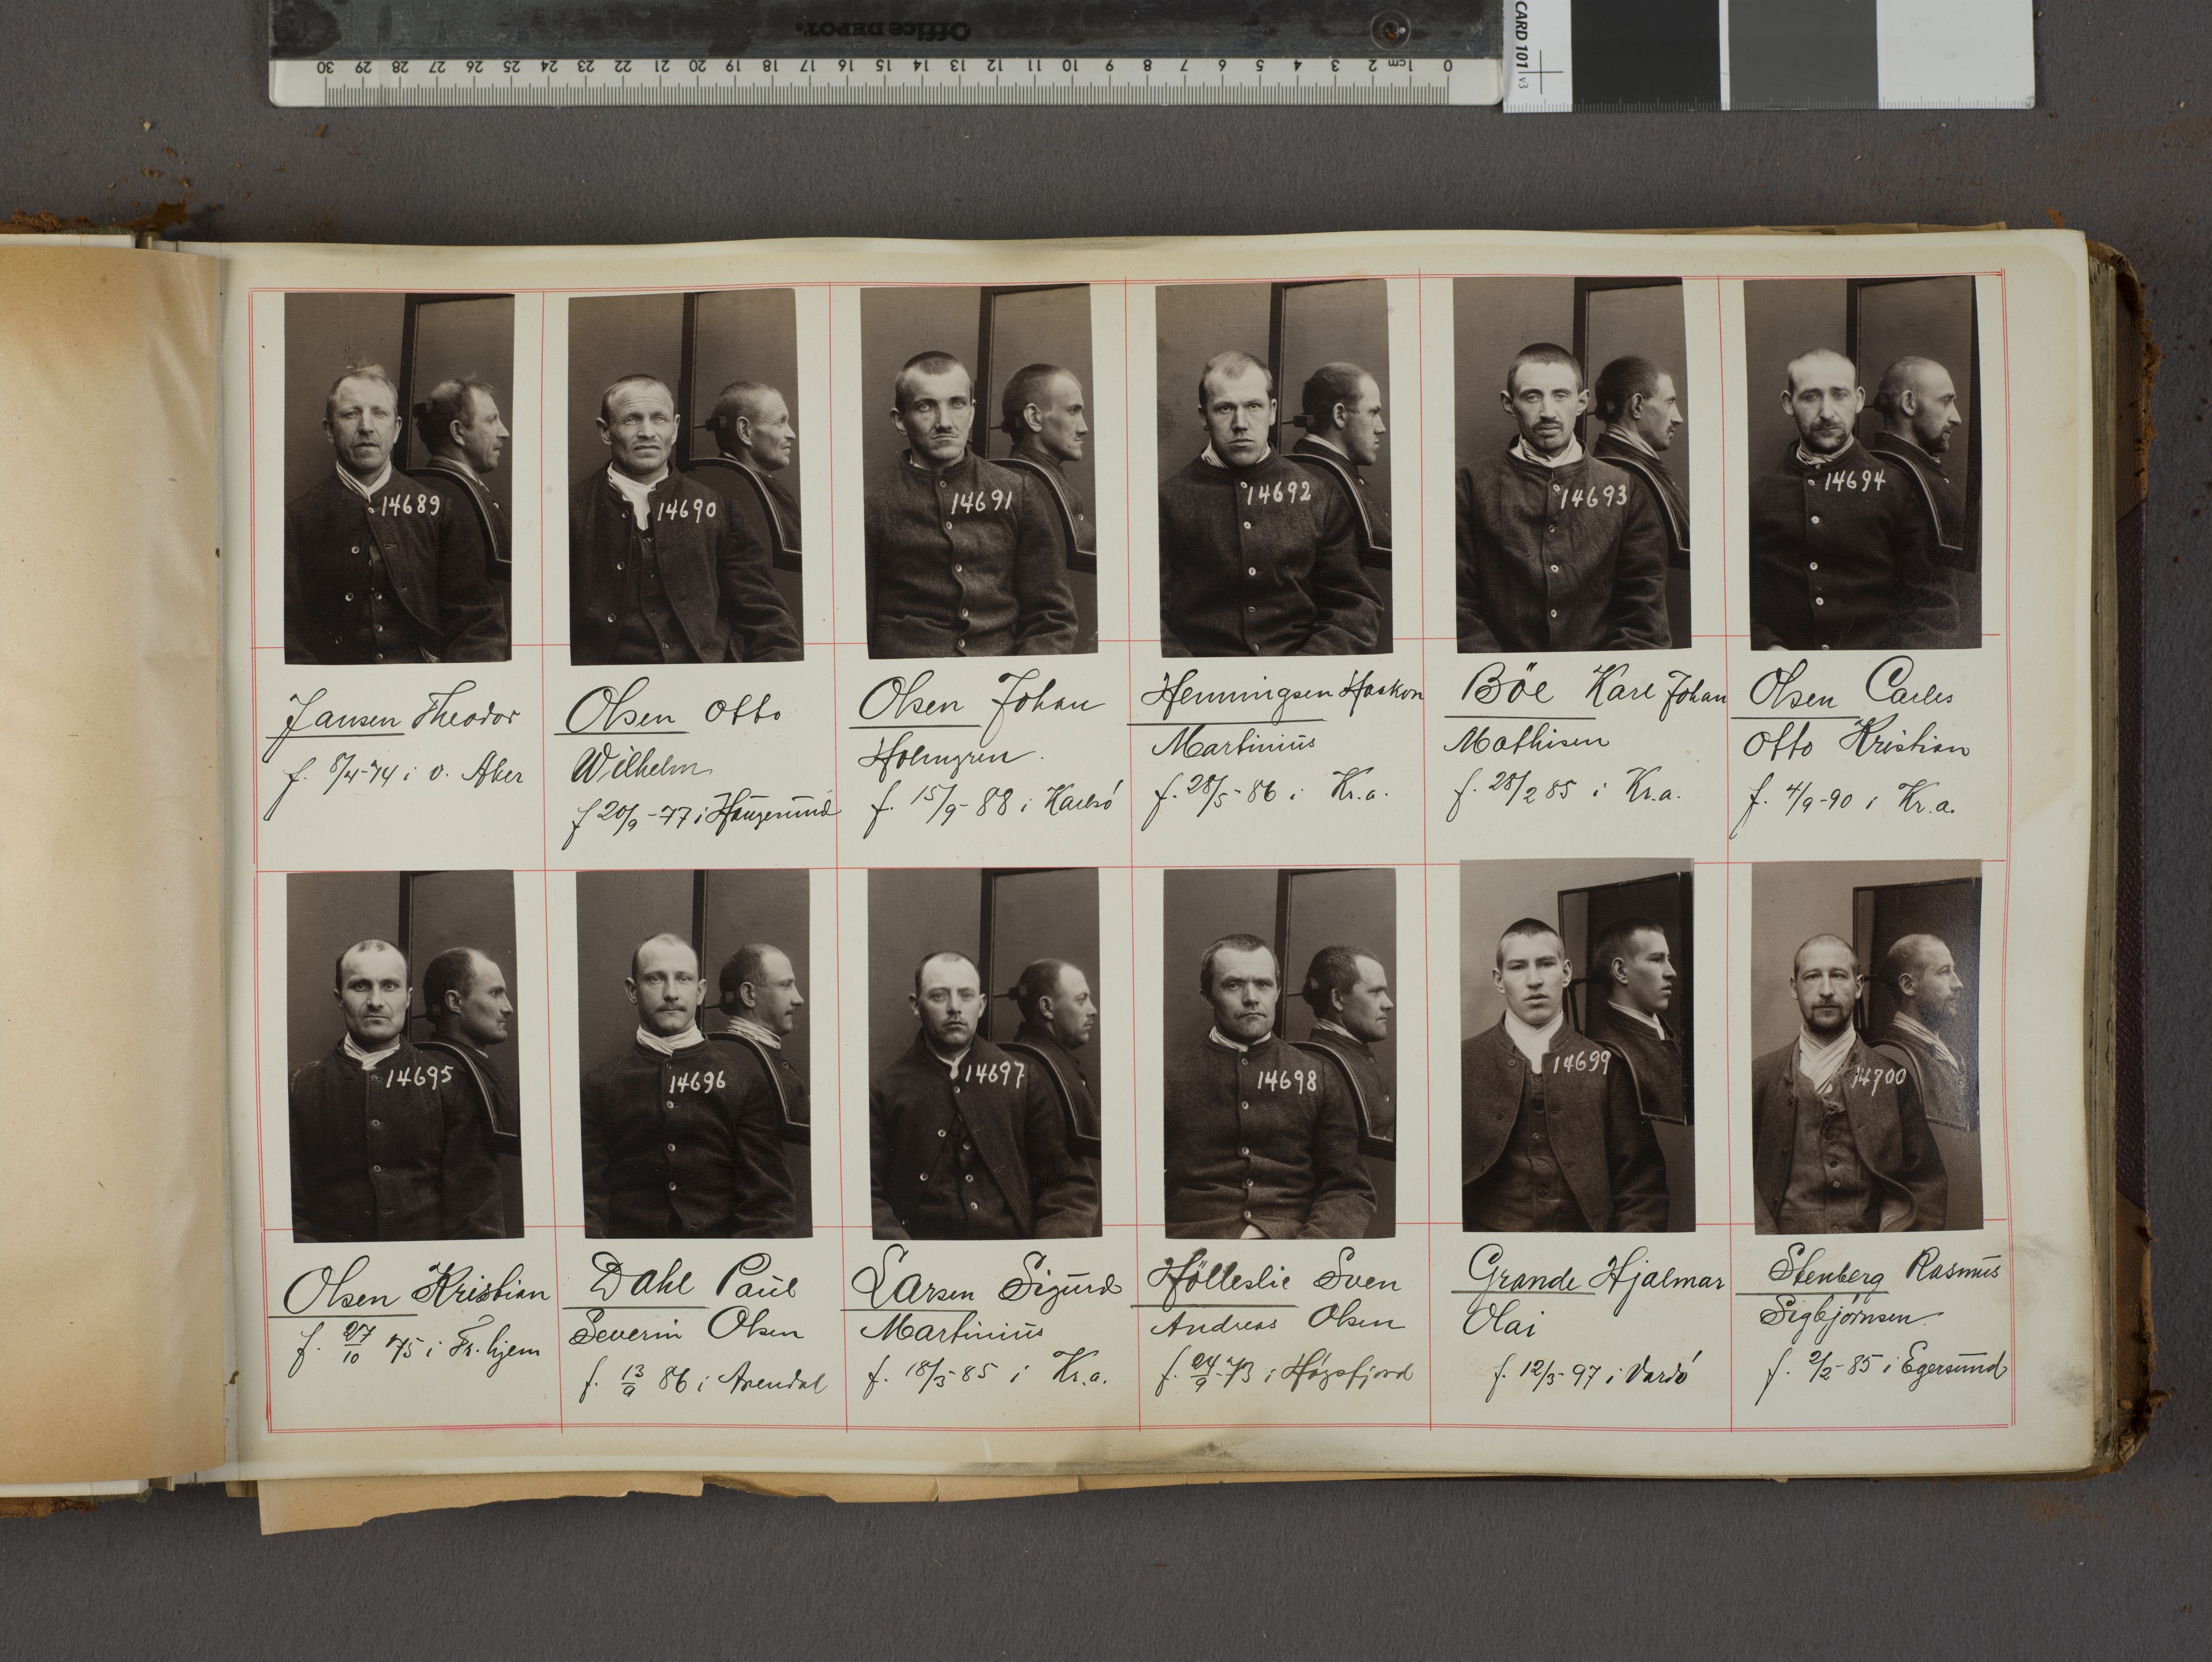 Office DEPOT.
30 29 28 27 26 25 24 23 22 21 20 19 18 17 16 15 14 13 12 11 10 9 8 7 6 5 4 3 2 1cm 0
CARD 101 v3
14689
14690
14691
14692
14693
14694
Jansen Theodor
f. 8/4-74 i v. Aker
Olsen Otto
Wilhelm
f 20/9-77 i Haugesund
Olsen Johan
Holmgren.
f. 15/9-88 i Karlsö
Henningsen Haakon
Martinius
f. 28/5-86 i Kr.a.
Böe Karl Johan
Mathisen
f. 28/2 85 i Kr.a.
Olsen Carles
Otto Kristian
f. 4/9-90 i Kr.a.
14695
14696
14697
14698
14699
14700
Olsen Kristian
f. 27/10 75 i Tr.hjem
Dahl Paul
Severin Olsen
f. 13/9 86 i Arendal
Larsen Sigurd
Martinius
f. 18/3-85 i Kr.a.
Hölleslie Sven
Andreas Olsen
f. 24/9-73 i Högsfjord
Grande Hjalmar
Olai
f. 12/3-97 i Vardö
Stenberg Rasmus
Sigbjørnsen.
f. 2/2-85 i Egersund